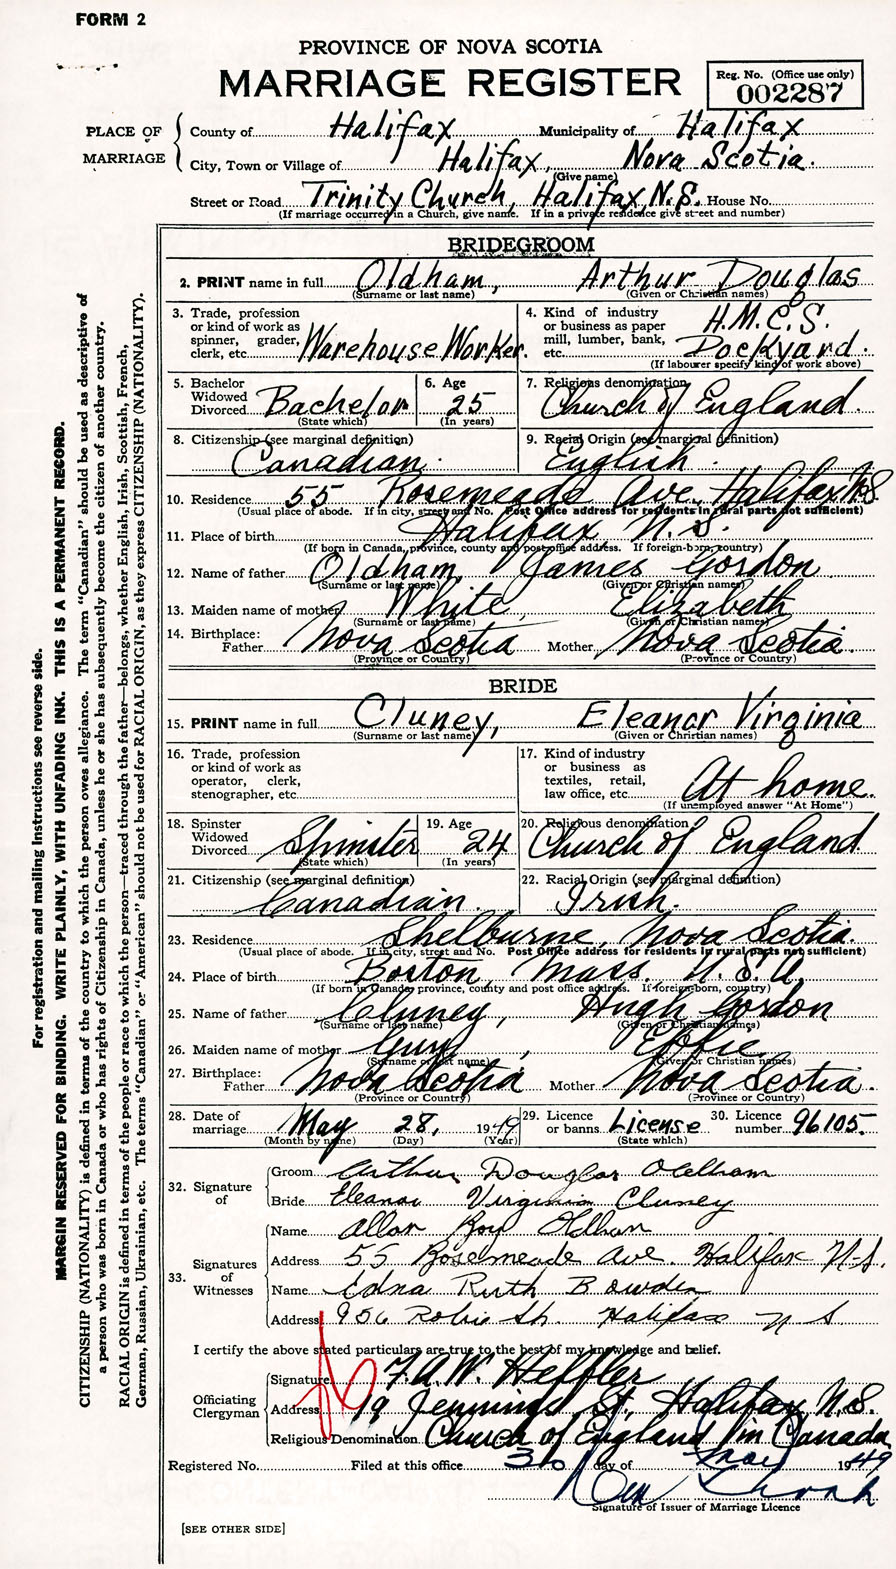 FORM 2
PROVINCE OF NOVA SCOTIA
MARRIAGE REGISTER
Reg. No. (Office use only)
002287
PLACE OF MARRIAGE
County of Halifax Municipality of Halifax
City, Town or Village of Halifax, Nova Scotia.
(Give name)
Street or Road Trinity Church, Halifax, N.S. House No.
(If marriage occurred in a Church, give name. If in a private residence give street and number)
BRIDEGROOM
2. PRINT name in full Oldham, Arthur Douglas
(Surname or last name) (Given or Christian names)
3. Trade, profession or kind of work as spinner, grader, clerk, etc. Warehouse Worker.
4. Kind of industry or business as paper mill, lumber, bank, etc. H.M.C.S. Dockyard.
(If labourer specify kind of work above)
5. Bachelor Widowed Divorced Bachelor
(State which)
6. Age 25
(In years)
7. Religious denomination
Church of England.
8. Citizenship (see marginal definition)
Canadian.
9. Racial Origin (see marginal definition)
English.
10. Residence 55 Rosemeade Ave, Halifax N.S.
(Usual place of abode. If in city, street and No. Post Office address for residents in rural parts not sufficient)
11. Place of birth Halifax N.S.
(If born in Canada, province, county and post office address. If foreign-born, country)
12. Name of father Oldham, James Gordon
(Surname or last name) (Given or Christian names)
13. Maiden name of mother White, Elizabeth
(Surname or last name) (Given or Christian names)
14. Birthplace: Father Nova Scotia Mother Nova Scotia.
(Province or Country) (Province or Country)
BRIDE
15. PRINT name in full Cluney, Eleanor Virginia
(Surname or last name) (Given or Christian names)
16. Trade, profession or kind of work as operator, clerk, stenographer, etc.
17. Kind of industry or business as textiles, retail, law office, etc. At home.
(If unemployed answer "At Home")
18. Spinster Widowed Divorced Spinster
(State which)
19. Age 24
(In years)
20. Religious denomination
Church of England
21. Citizenship (see marginal definition)
Canadian.
22. Racial Origin (see marginal definition)
Irish.
23. Residence Shelburne, Nova Scotia.
(Usual place of abode. If in city, street and No. Post Office address for residents in rural parts not sufficient)
24. Place of birth Boston, Mass. U.S.A.
(If born in Canada, province, county and post office address. If foreign-born, country)
25. Name of father Cluney, Hugh Gordon
(Surname or last name) (Given or Christian names)
26. Maiden name of mother Guy, Effie
(Surname or last name) (Given or Christian names)
27. Birthplace: Father Nova Scotia Mother Nova Scotia.
(Province or Country) (Province or Country)
28. Date of marriage May 28, 1949
(Month by name) (Day) (Year)
29. Licence or banns License
(State which)
30. Licence number 96105.
32. Signature of
Groom Arthur Douglas Oldham
Bride Eleanor Virginia Cluney
33. Signatures of Witnesses
Name Allan Roy Oldham
Address 55 Rosemeade Ave. Halifax N.S.
Name Edna Ruth Bowden
Address 956 Robie St. Halifax N S
I certify the above stated particulars are true to the best of my knowledge and belief.
Officiating Clergyman
Signature F.A.W. Heffler
Address 19 Jennings St., Halifax, N.S.
Religious Denomination Church of England in Canada
Registered No. Filed at this office 30 day of May 1949
Signature of Issuer of Marriage Licence
[SEE OTHER SIDE]
For registration and mailing instructions see reverse side.
MARGIN RESERVED FOR BINDING. WRITE PLAINLY, WITH UNFADING INK. THIS IS A PERMANENT RECORD.
CITIZENSHIP (NATIONALITY) is defined in terms of the country to which the person owes allegiance. The term "Canadian" should be used as descriptive of
a person who was born in Canada or who has rights of Citizenship in Canada, unless he or she has subsequently become the citizen of another country.
RACIAL ORIGIN is defined in terms of the people or race to which the person—traced through the father—belongs, whether English, Irish, Scottish, French,
German, Russian, Ukrainian, etc. The terms "Canadian" or "American" should not be used for RACIAL ORIGIN, as they express CITIZENSHIP (NATIONALITY).